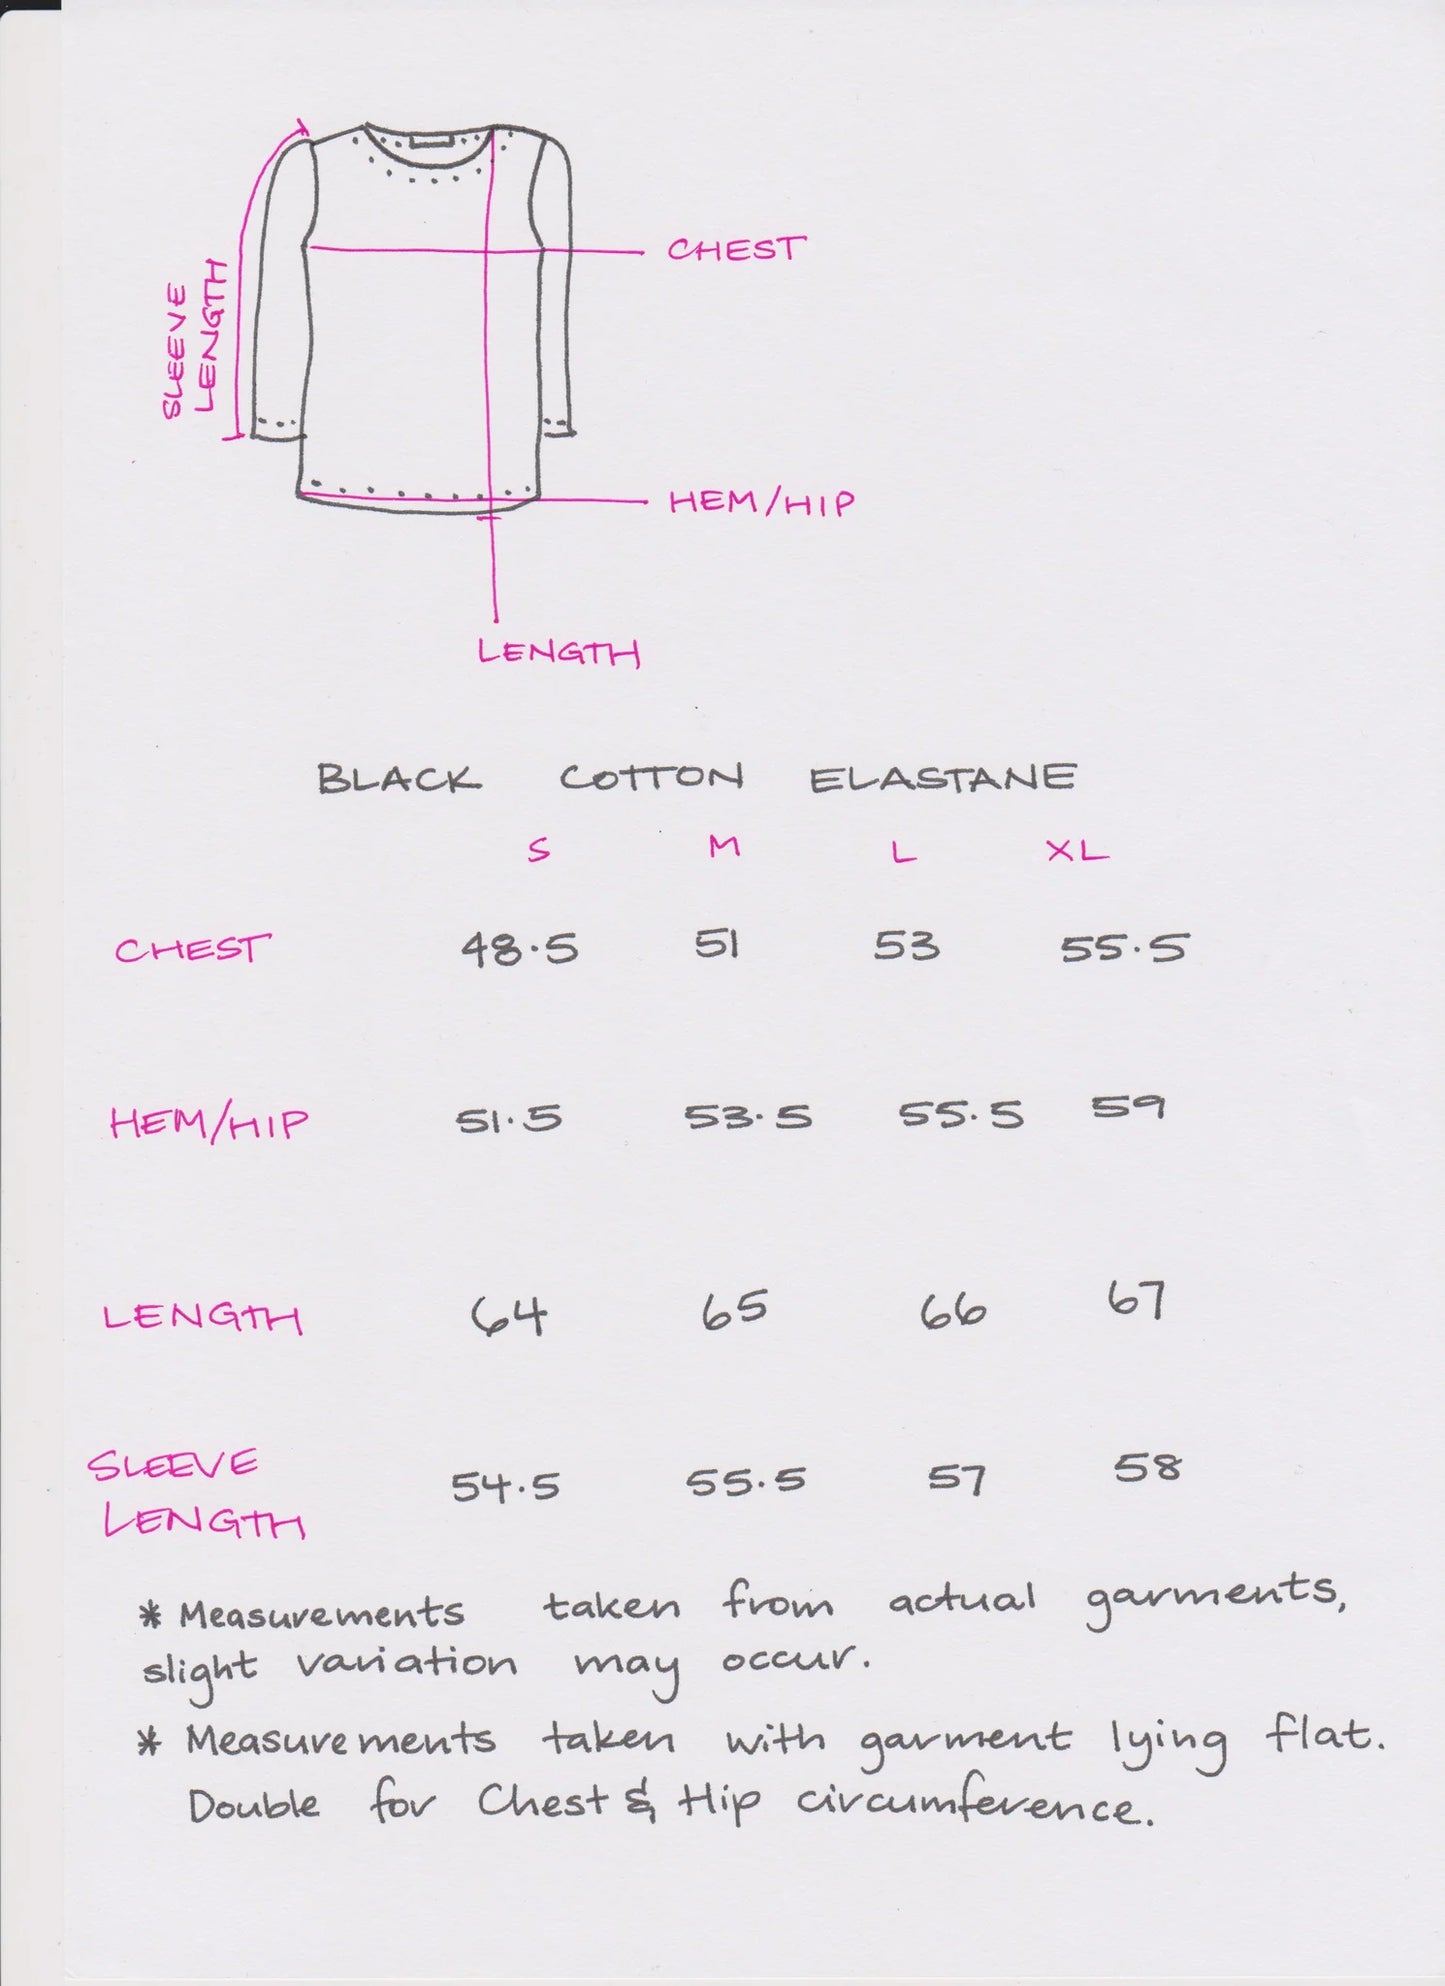 SLEEVE
LENGTH
CHEST
HEM/HIP
LENGTH
BLACK COTTON ELASTANE
S M L XL
CHEST 48.5 51 53 55.5
HEM/HIP 51.5 53.5 55.5 59
LENGTH 64 65 66 67
SLEEVE
LENGTH 54.5 55.5 57 58
* Measurements taken from actual garments,
slight variation may occur.
* Measurements taken with garment lying flat.
Double for Chest & Hip circumference.